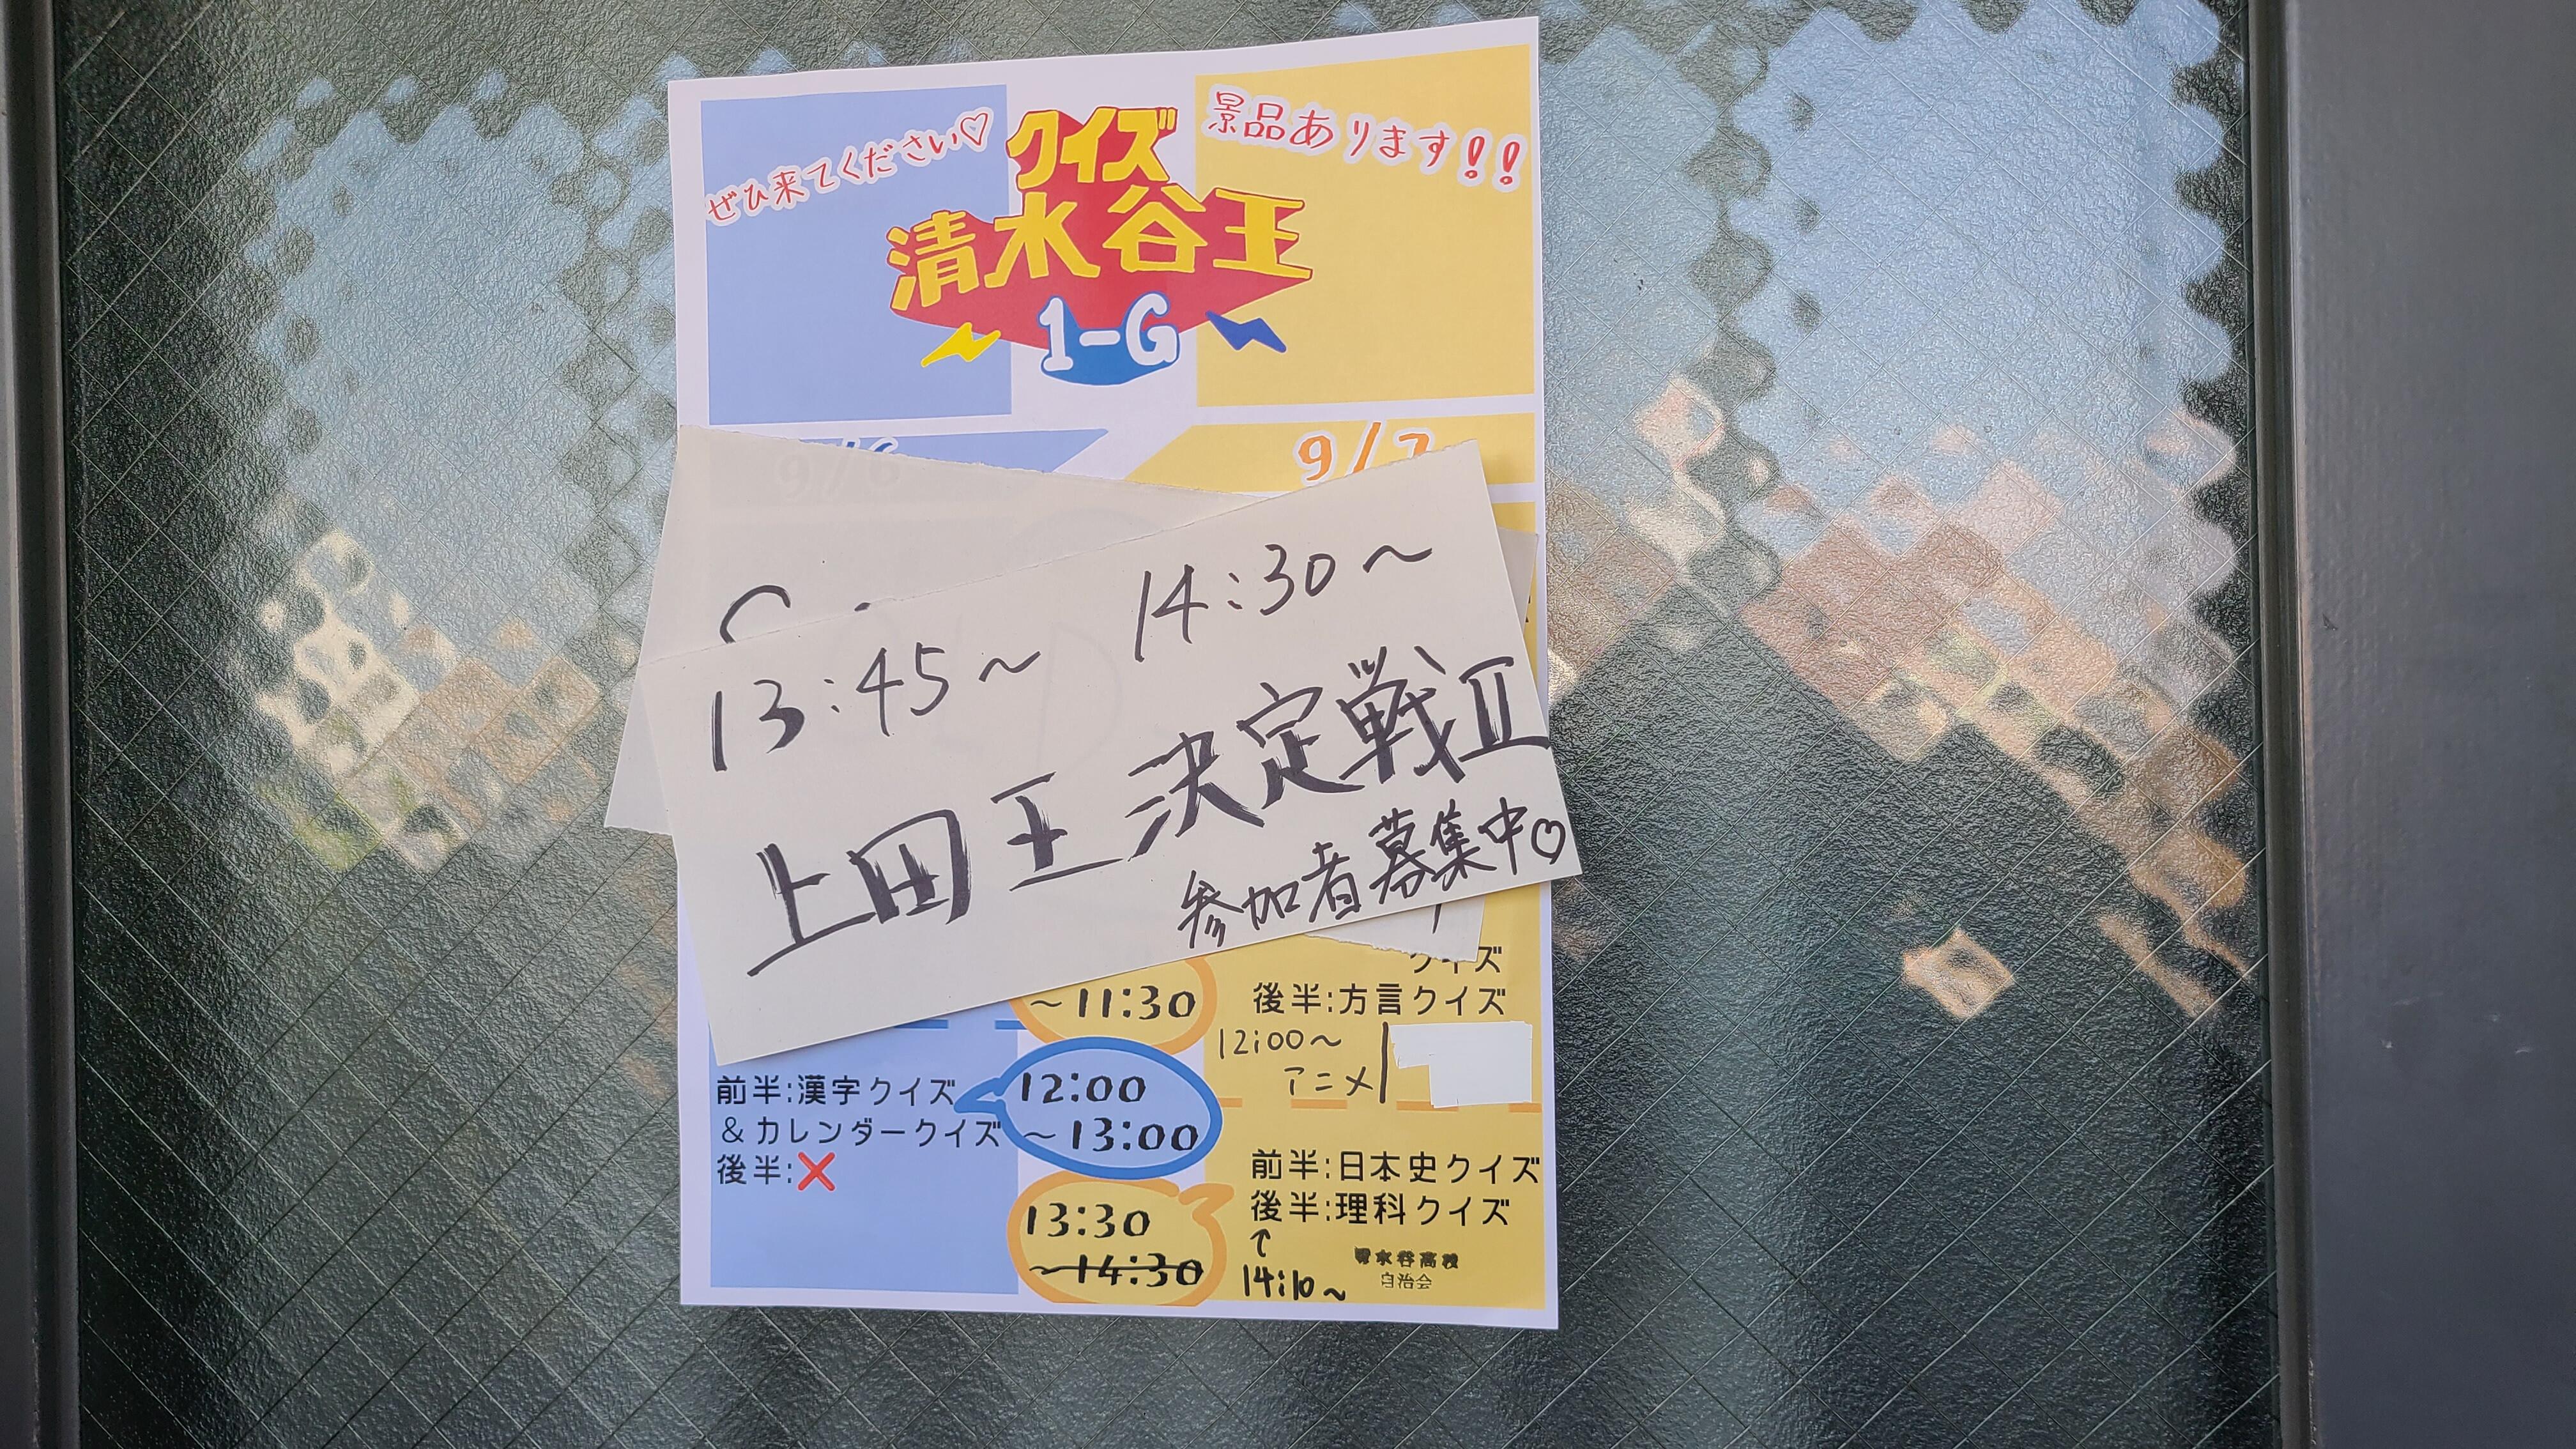 ぜひ来てください♡
クイズ
清水谷王
1-G
景品あります!!
9/6
9/7
13:45～ 14:30～
上田王決定戦Ⅱ
参加者募集中♡
クイズ
～11:30
後半:方言クイズ
12:00～
アニメ
前半:漢字クイズ
&カレンダークイズ
後半:❌
12:00
～13:00
前半:日本史クイズ
後半:理科クイズ
↑
14:10～
13:30
～14:30
清水谷高校
自治会